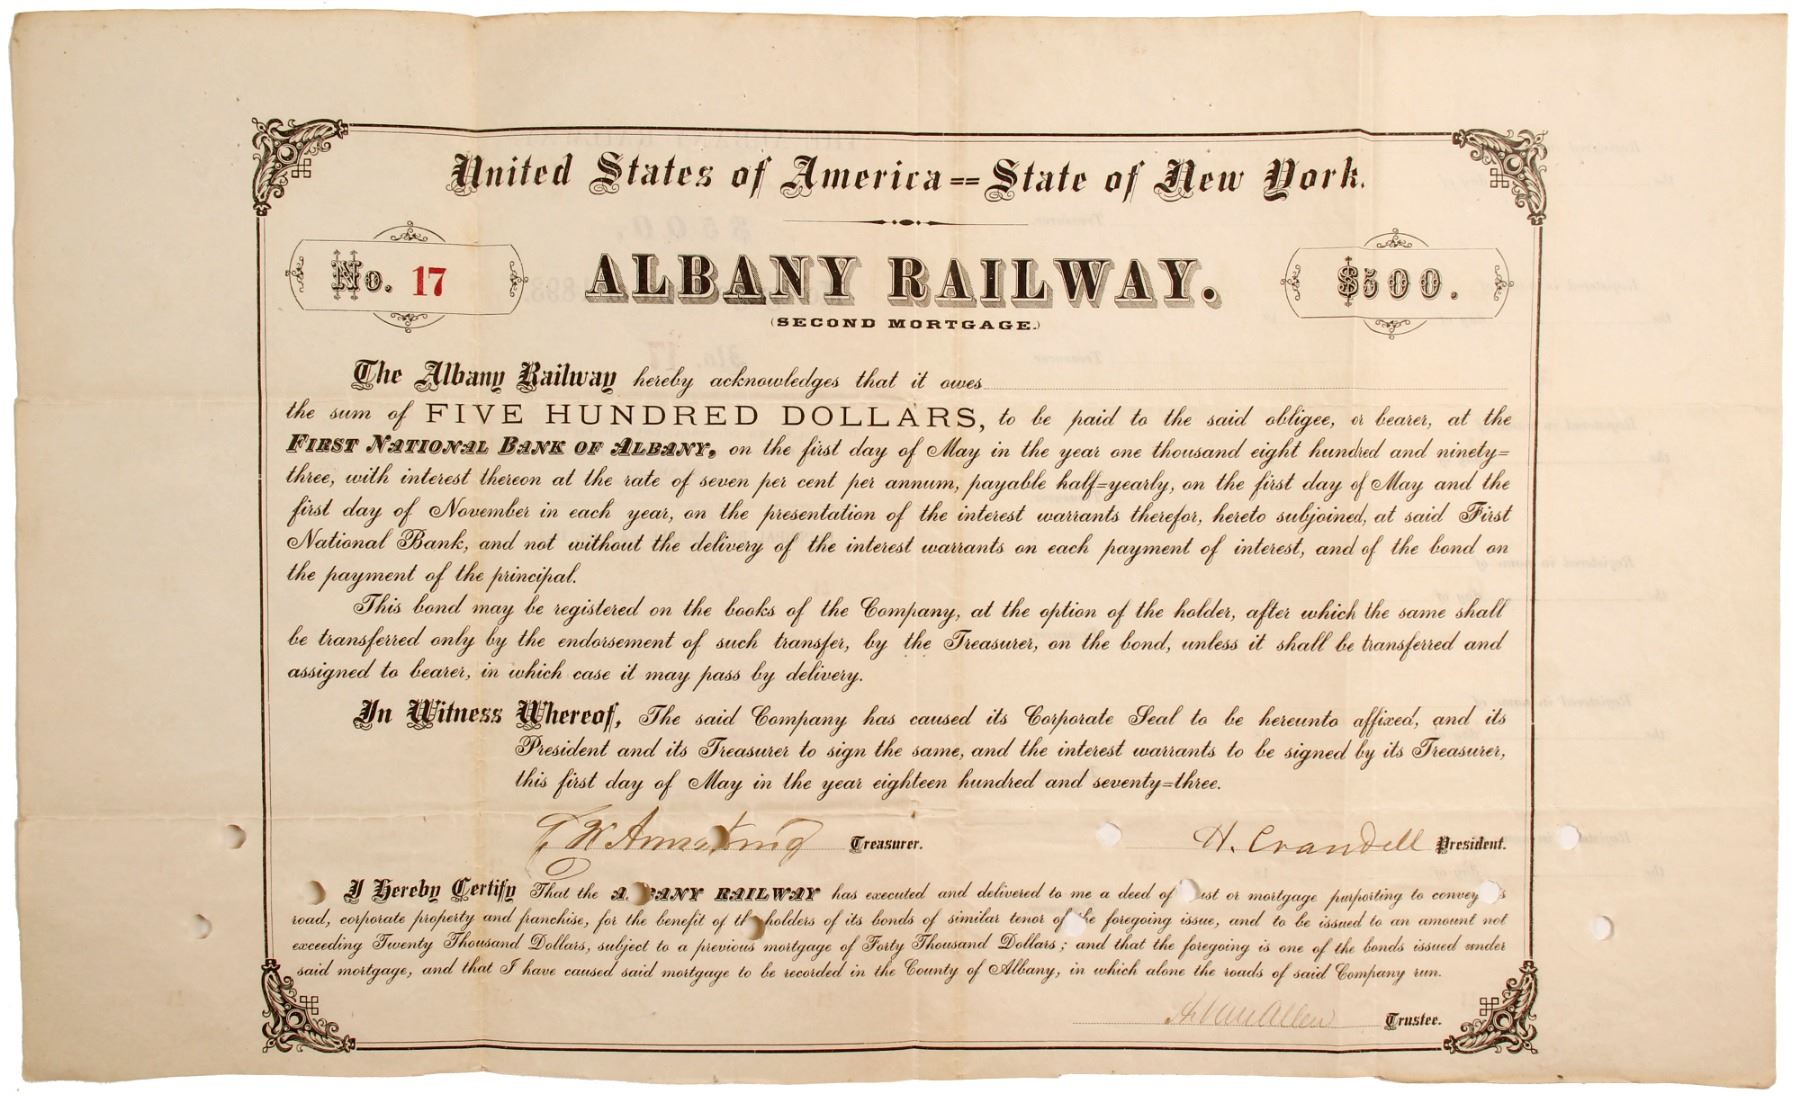 United States of America==State of New York.
No. 17
ALBANY RAILWAY.
$500.
(SECOND MORTGAGE.)
The Albany Railway hereby acknowledges that it owes
the sum of FIVE HUNDRED DOLLARS, to be paid to the said obligee, or bearer, at the
FIRST NATIONAL BANK OF ALBANY, on the first day of May in the year one thousand eight hundred and ninety=
three, with interest thereon at the rate of seven per cent per annum, payable half=yearly, on the first day of May and the
first day of November in each year, on the presentation of the interest warrants therefor, hereto subjoined, at said First
National Bank, and not without the delivery of the interest warrants on each payment of interest, and of the bond on
the payment of the principal.
This bond may be registered on the books of the Company, at the option of the holder, after which the same shall
be transferred only by the endorsement of such transfer, by the Treasurer, on the bond, unless it shall be transferred and
assigned to bearer, in which case it may pass by delivery.
In Witness Whereof, The said Company has caused its Corporate Seal to be hereunto affixed, and its
President and its Treasurer to sign the same, and the interest warrants to be signed by its Treasurer,
this first day of May in the year eighteen hundred and seventy=three.
Armstrong Treasurer.
H. Crandell President.
I Hereby Certify That the ALBANY RAILWAY has executed and delivered to me a deed of trust or mortgage purporting to convey its
road, corporate property and franchise, for the benefit of the holders of its bonds of similar tenor of the foregoing issue, and to be issued to an amount not
exceeding Twenty Thousand Dollars, subject to a previous mortgage of Forty Thousand Dollars; and that the foregoing is one of the bonds issued under
said mortgage, and that I have caused said mortgage to be recorded in the County of Albany, in which alone the roads of said Company run.
Van Allen Trustee.